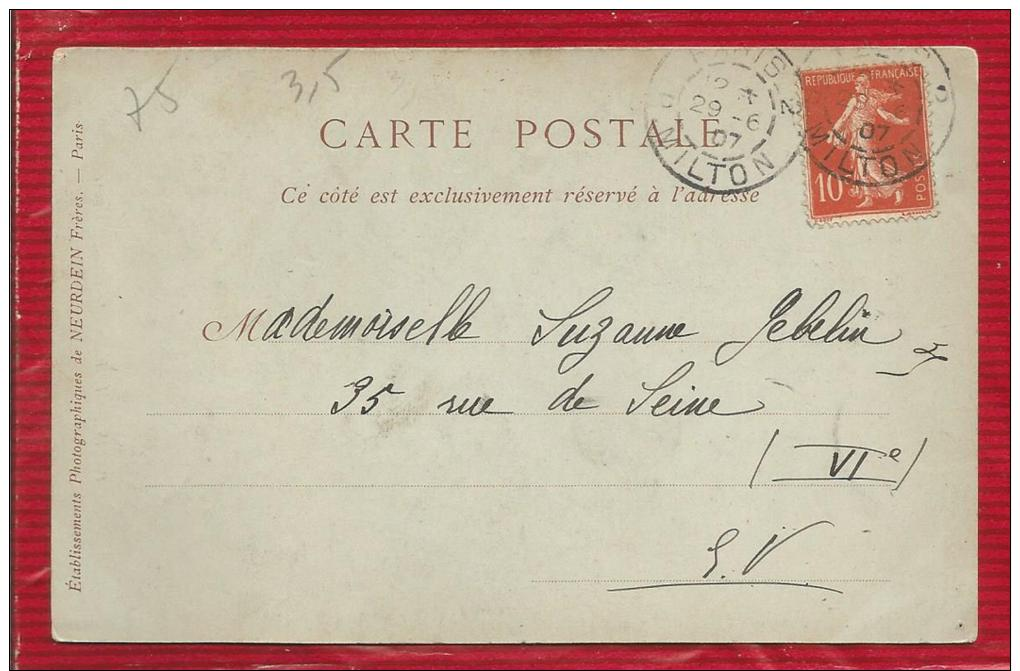 75
3,5
CARTE POSTALE
Ce côté est exclusivement réservé à l'adresse
RÉPUBLIQUE FRANÇAISE
10
POSTES
29 -6
07
MILTON
07
MILTON
Mademoiselle Suzanne Gebelin
35 rue de Seine
(VIe)
E.V.
Établissements Photographiques de NEURDEIN Frères. — Paris